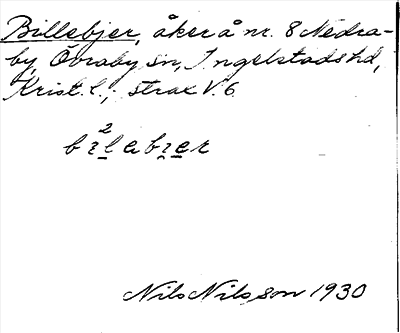 Billebjer, åker å nr. 8 Nedra-
by, Övraby sn, Ingelstads hd,
Krist. l.; strax V. 6
Nils Nilsson 1930